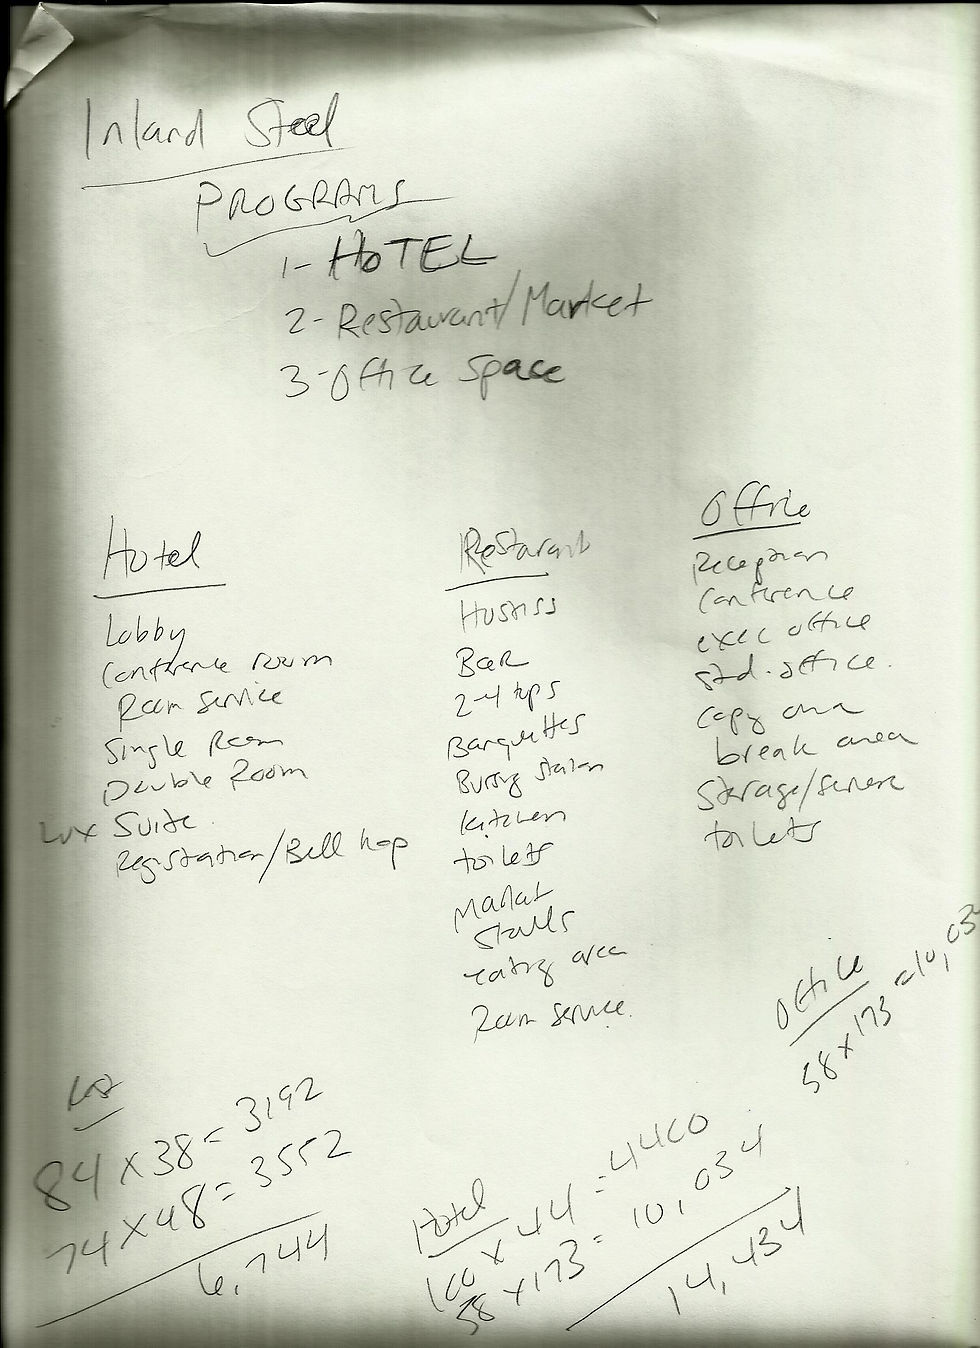 Inland Steel
PROGRAMS
1- HOTEL
2- Restaurant/Market
3- Office Space
Hotel
Lobby
Conference room
Room service
Single Room
Double Room
Lux Suite
Registration/Bell hop
Restaurant
Hostess
Bar
2-4 tops
Banquettes
Busing station
Kitchen
toilets
Market
Stalls
eating area
Room service.
Office
Reception
Conference
exec office
std. office.
copy area
break area
Storage/server
toilets
84 x 38 = 3192
74 x 48 = 3552
6,744
Hotel
100 x 44 = 4400
58 x 173 = 10,034
14,434
Office
58 x 173 = 10,03